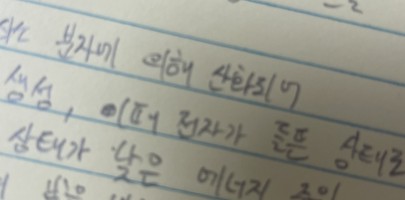 분자에 의해 산화되어
생성, 이때 전자가 들뜬 상태로
상태가 낮은 에너지 준위